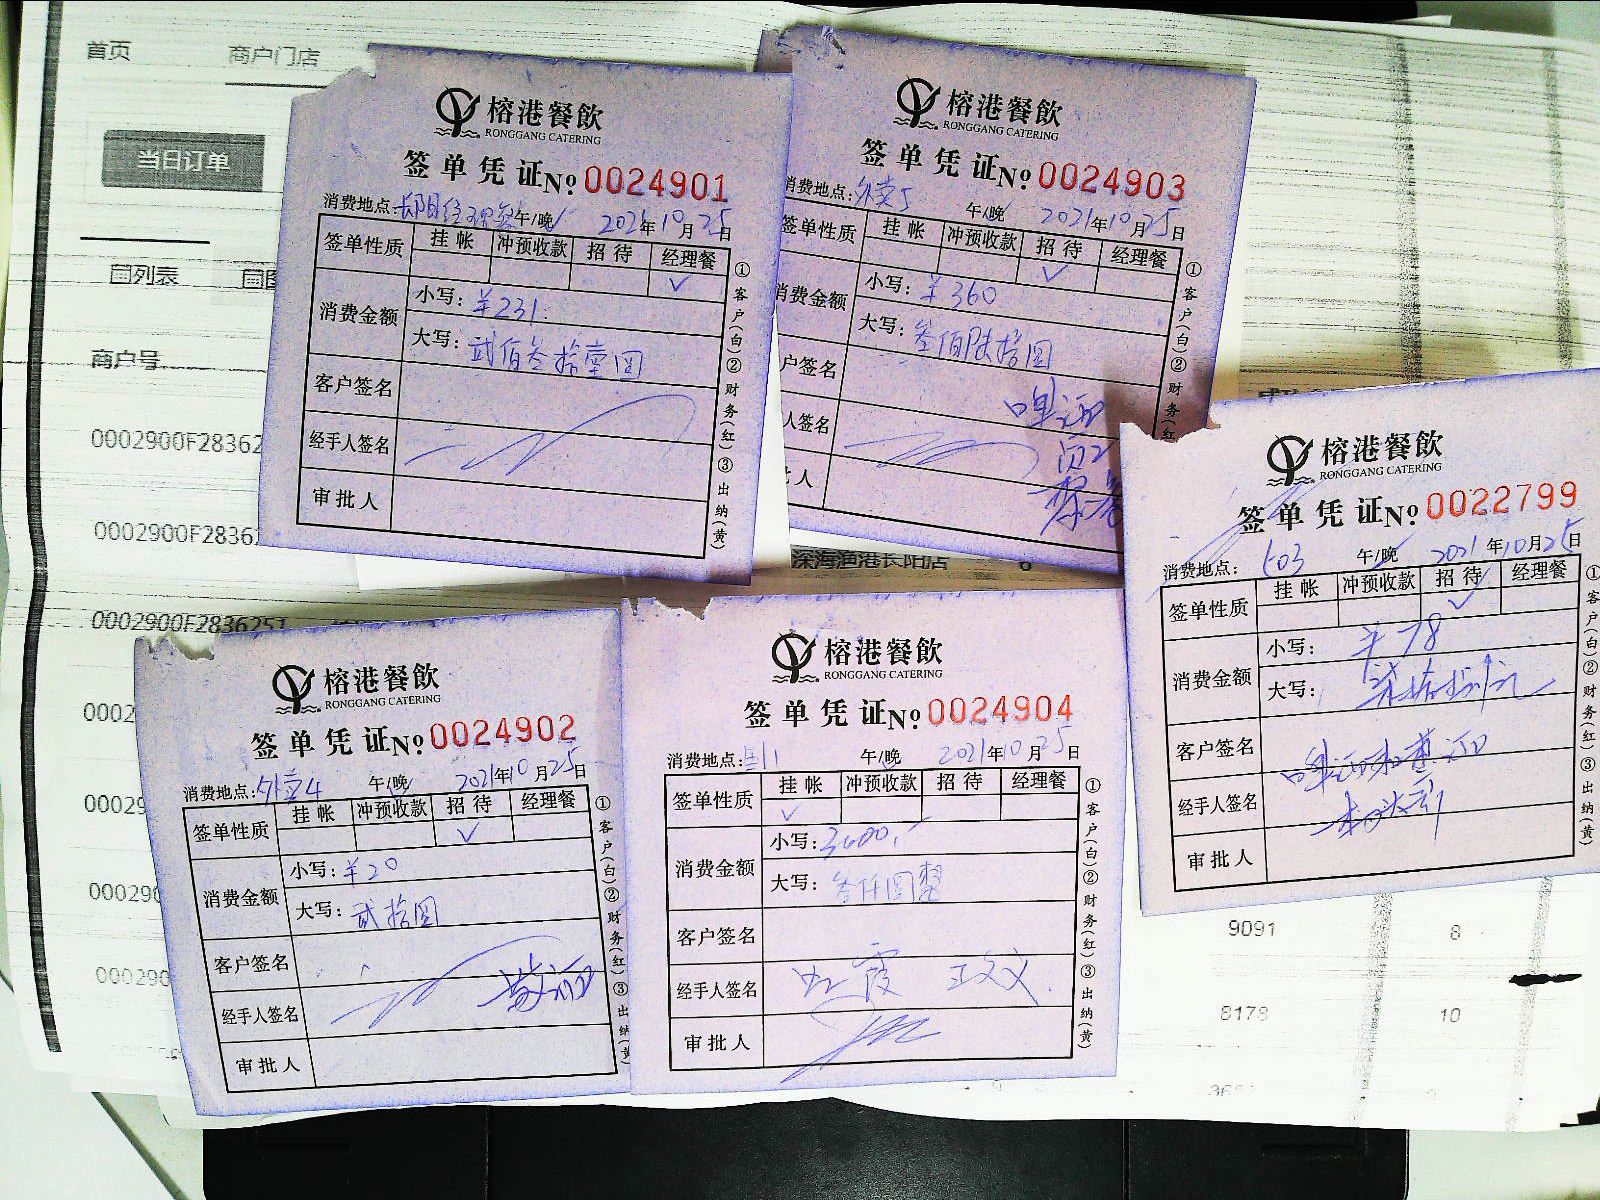 首页 商户门店
当日订单
国列表
商户号
0002900F28362
0002900F28362
0002900F2836251
0002
00029
000290
000290
深海渔港长阳店 6
9091 8
8178 10
榕港餐飲
RONGGANG CATERING
签单凭证 No 0024901
消费地点: 午/晚 2021年10月25日
签单性质 挂帐 冲预收款 招待 经理餐
✓
消费金额 小写: ¥231
大写: 贰佰叁拾壹圆
客户签名
经手人签名
审批人
①客户(白)②财务(红)③出纳(黄)
榕港餐飲
RONGGANG CATERING
签单凭证 No 0024903
消费地点: 外卖5 午/晚 2021年10月25日
签单性质 挂帐 冲预收款 招待 经理餐
✓
消费金额 小写: ¥360
大写: 叁佰陆拾圆
户签名
人签名
人
①客户(白)②财务(红)
榕港餐飲
RONGGANG CATERING
签单凭证 No 0022799
消费地点: 503 午/晚 2021年10月25日
签单性质 挂帐 冲预收款 招待 经理餐
✓
消费金额 小写: ¥78
大写:
客户签名
经手人签名
审批人
①客户(白)②财务(红)③出纳(黄)
榕港餐飲
RONGGANG CATERING
签单凭证 No 0024902
消费地点: 午/晚 2021年10月25日
签单性质 挂帐 冲预收款 招待 经理餐
✓
消费金额 小写: ¥20
大写: 贰拾圆
客户签名
经手人签名
审批人
①客户(白)②财务(红)③出纳(黄)
榕港餐飲
RONGGANG CATERING
签单凭证 No 0024904
消费地点: 午/晚 2021年10月25日
签单性质 挂帐 冲预收款 招待 经理餐
✓
消费金额 小写: 3000.-
大写: 叁仟圆整
客户签名
经手人签名
审批人
①客户(白)②财务(红)③出纳(黄)